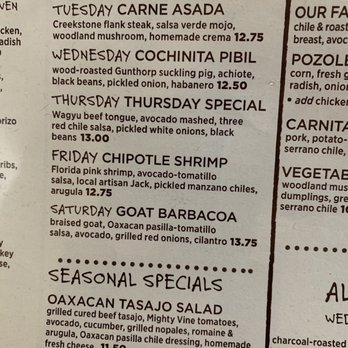 VEN
cken,
radish
o
orizo
ribs,
ne,
o
key
se,
TUESDAY CARNE ASADA
Creekstone flank steak, salsa verde mojo,
woodland mushroom, homemade crema 12.75
WEDNESDAY COCHINITA PIBIL
wood-roasted Gunthorp suckling pig, achiote,
black beans, pickled onion, habanero 12.50
THURSDAY THURSDAY SPECIAL
Wagyu beef tongue, avocado mashed, three
red chile salsa, pickled white onions, black
beans 13.00
FRIDAY CHIPOTLE SHRIMP
Florida pink shrimp, avocado-tomatillo
salsa, local artisan Jack, pickled manzano chiles,
arugula 12.75
SATURDAY GOAT BARBACOA
braised goat, Oaxacan pasilla-tomatillo
salsa, avocado, grilled red onions, cilantro 13.75
SEASONAL SPECIALS
OAXACAN TASAJO SALAD
grilled cured beef tasajo, Mighty Vine tomatoes,
avocado, cucumber, grilled nopales, romaine &
arugula, Oaxacan pasilla chile dressing, homemade
fresh cheese 11.50
OUR FA
chile & roast
breast, avoc
POZOLE
corn, fresh g
radish, onio
• add chicken
CARNITA
pork, potato-
serrano chile,
VEGETAB
woodland mus
dumplings, gre
serrano chile 10
AL
WED
charcoal-roasted